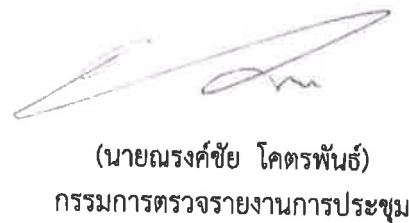 (นายณรงค์ชัย โคตรพันธ์)
กรรมการตรวจรายงานการประชุม